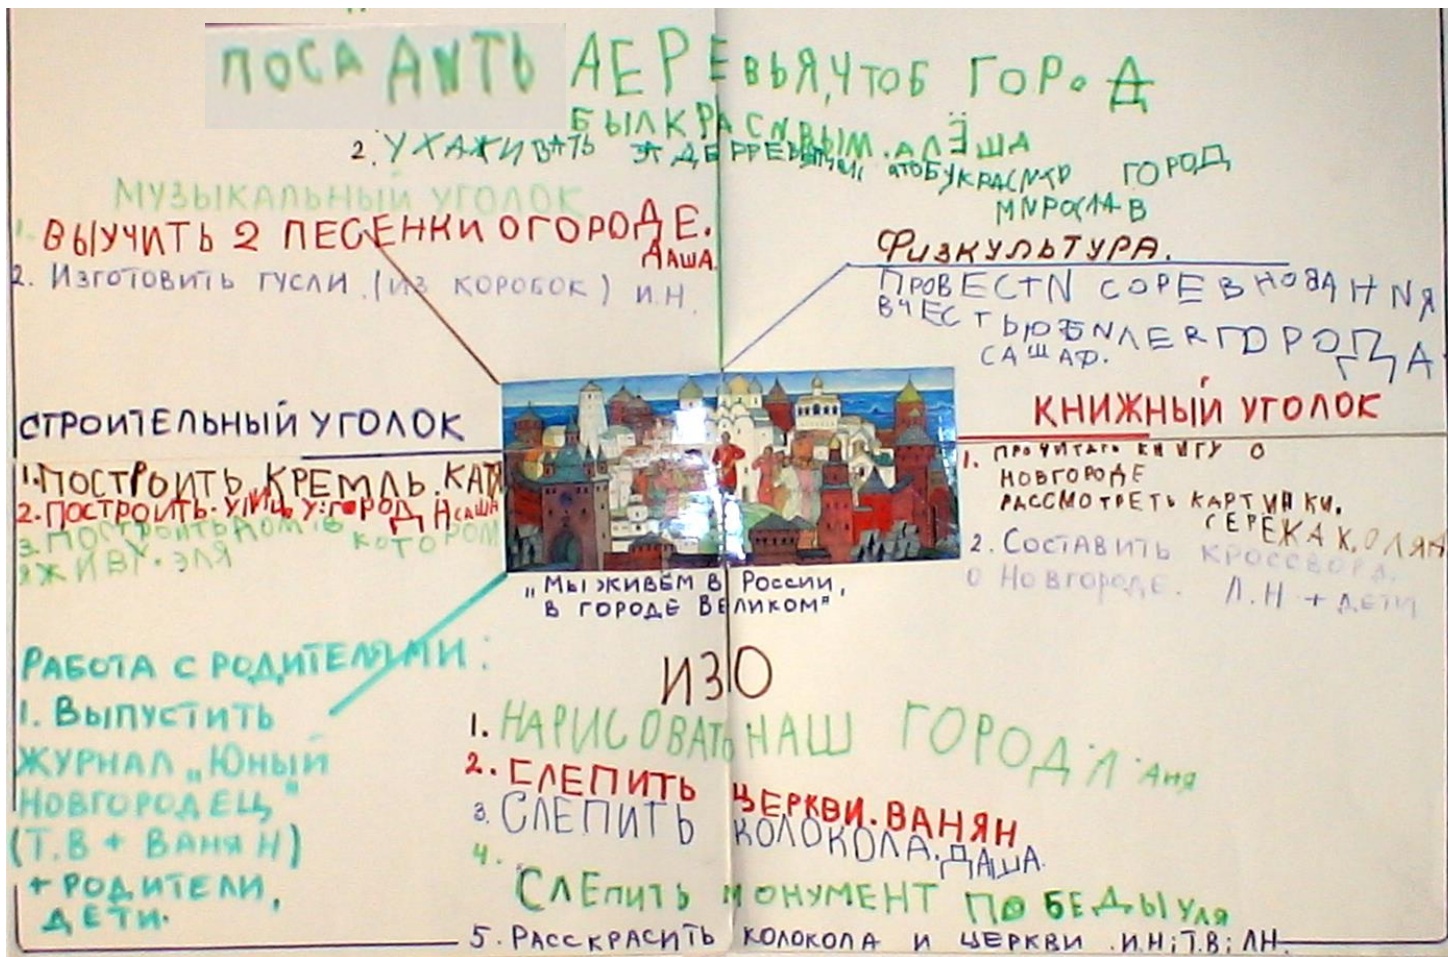 ПОСАДИТЬ ДЕРЕВЬЯ, ЧТОБ ГОРОД
БЫЛ КРАСИВЫМ. АЛЁША
2. УХАЖИВАТЬ
ГОРОД
МИРОСЛАВ
МУЗЫКАЛЬНЫЙ УГОЛОК
1. ВЫУЧИТЬ 2 ПЕСЕНКИ О ГОРОДЕ.
ДАША.
2. Изготовить гусли (из коробок) И.Н.
ФИЗКУЛЬТУРА.
ПРОВЕСТИ СОРЕВНОВАНИЯ
В ЧЕСТЬ ЮБИЛЕЯ ГОРОДА
САША Ф.
СТРОИТЕЛЬНЫЙ УГОЛОК
1. ПОСТРОИТЬ КРЕМЛЬ. КАТЯ
2. ПОСТРОИТЬ УЛИЦУ: ГОРОД Н САША
3. ПОСТРОИТЬ ДОМ В КОТОРОМ
Я ЖИВУ. ЭЛЯ
КНИЖНЫЙ УГОЛОК
1. ПРОЧИТАТЬ КНИГУ О
НОВГОРОДЕ
РАССМОТРЕТЬ КАРТИНКИ.
СЕРЕЖА К, ОЛЯ Н
2. Составить кроссворд
о Новгороде. Л.Н + дети
„Мы живём в России,
в городе Великом"
РАБОТА С РОДИТЕЛЯМИ:
1. Выпустить
журнал „Юный
Новгородец"
(Т.В + Ваня Н)
+ родители,
дети.
ИЗО
1. НАРИСОВАТЬ НАШ ГОРОД Л Аня
2. СЛЕПИТЬ ЦЕРКВИ. ВАНЯ Н
3. СЛЕПИТЬ КОЛОКОЛА. ДАША.
4. СЛЕПИТЬ МОНУМЕНТ ПОБЕДЫ УЛЯ
5. РАССКРАСИТЬ КОЛОКОЛА И ЦЕРКВИ. И.Н; Т.В; ЛН.